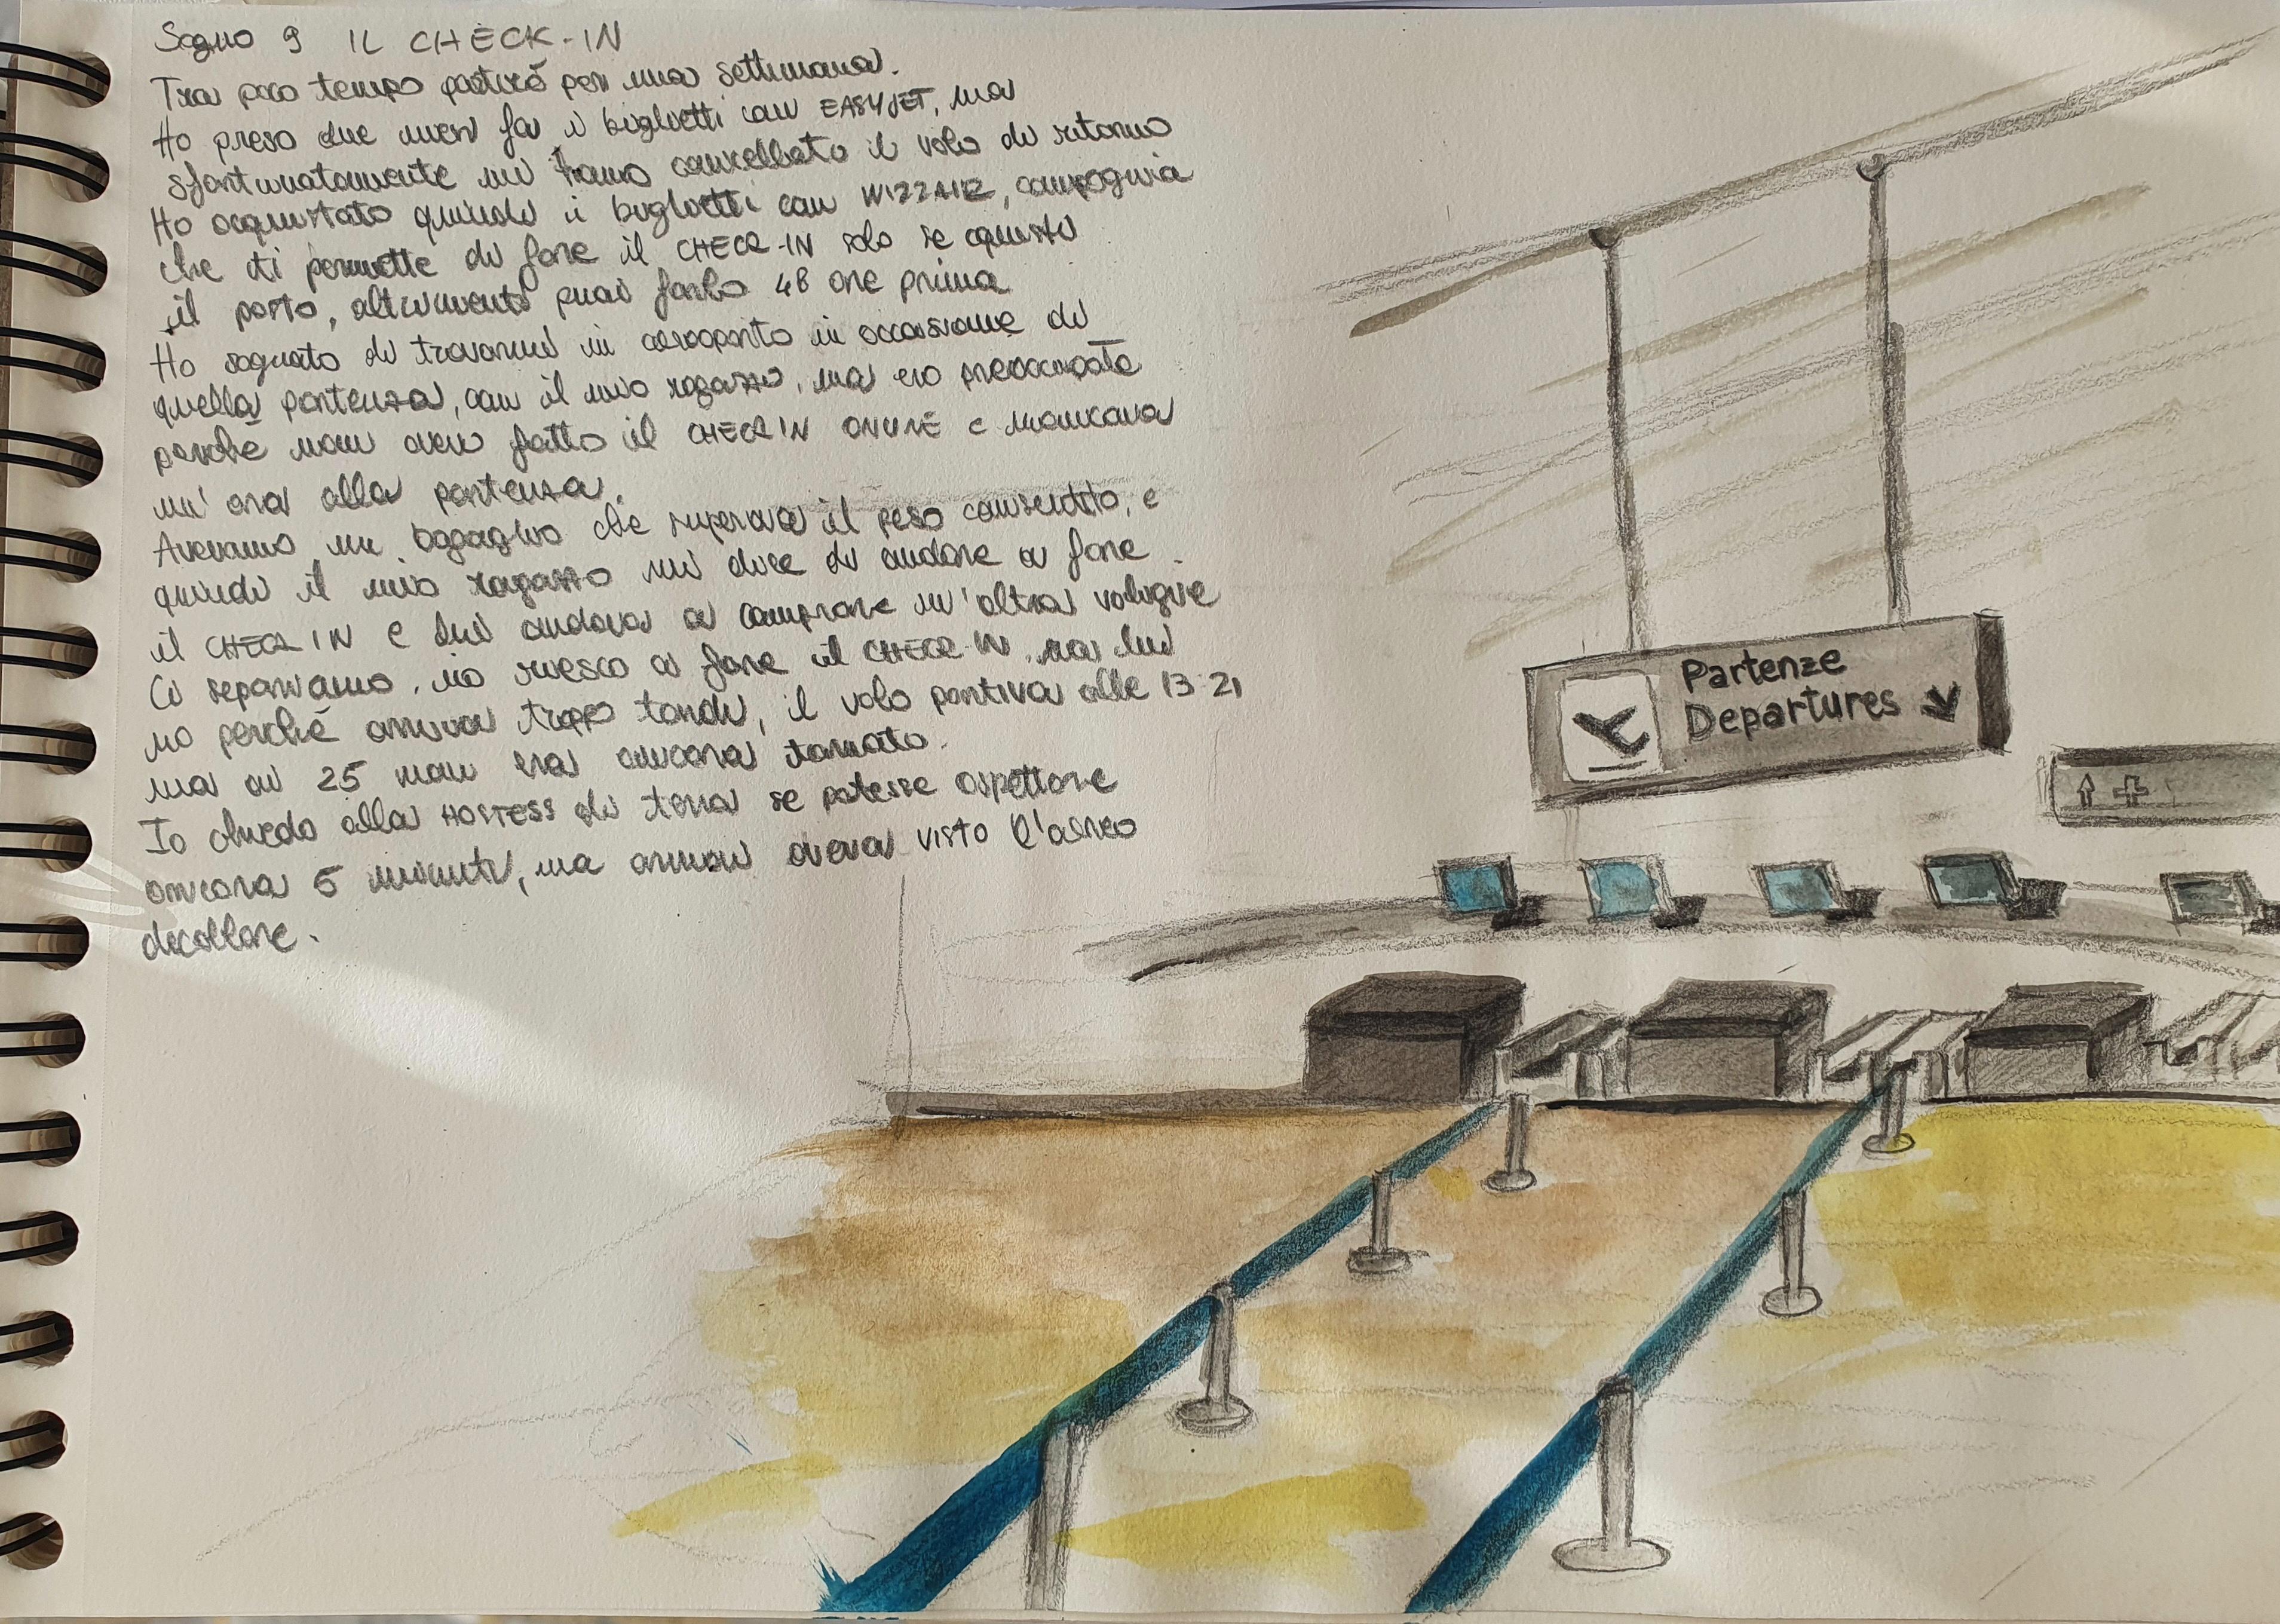 Sogno 9 IL CHECK-IN
Tra poco tempo partirò per una settimana.
Ho preso due mesi fa i biglietti con EASYJET, ma
sfortunatamente mi hanno cancellato il volo di ritorno
Ho acquistato quindi i biglietti con WIZZAIR, compagnia
che ti permette di fare il CHECK-IN solo se acquisti
il posto, altrimenti puoi farlo 48 ore prima
Ho sognato di trovarmi in aeroporto in occasione di
quella partenza, con il mio ragazzo, ma ero preoccupata
perché non avevo fatto il CHECK IN ONLINE e mancava
un'ora alla partenza.
Avevamo un bagaglio che superava il peso consentito, e
quindi il mio ragazzo mi dice di andare a fare
il CHECK IN e lui andava a comprare un'altra valigia
Ci separiamo, io riesco a fare il CHECK-IN, ma lui
no perché arriva troppo tardi, il volo partiva alle 13:21
ma ai 25 non era ancora tornato.
Io chiedo alla HOSTESS di terra se potesse aspettare
ancora 5 minuti, ma ormai aveva visto l'aereo
decollare.
Partenze
Departures